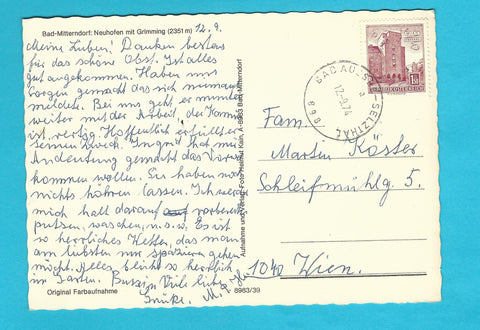 Bad-Mitterndorf: Neuhofen mit Grimming (2351 m)
12.9.
Meine Lieben! Danken bestens
für das schöne Obst. Ist alles
gut angekommen. Haben uns
Sorgen gemacht das sich niemand
meldete. Bei uns geht es munter
weiter mit der Arbeit, der Kamin
ist fertig. Hoffentlich erfüllt er
seinen Zweck. Ingrid hat mir
Andeutung gemacht das
kommen wollen. Sie haben noch
nichts hören lassen. Ich werde
mich halt darauf vorbereiten
putzen, waschen, u.s.w. Es ist
so herrliches Wetter, das man
am liebsten nur spazieren gehen
möcht. Alles blüht so herrlich
im Garten. Bussi Viele liebe
Grüße. M.
Original Farbaufnahme
8983/39
Aufnahme und Verlag: Foto Helmut Klein, A-8983 Bad Mitterndorf
BAD AUSSEE-SELZTHAL
12.9.74
a
668
S 1.50
REPUBLIK ÖSTERREICH
Fam.
Marten Köster
Schleifmühlg 5.
1040 Wien.